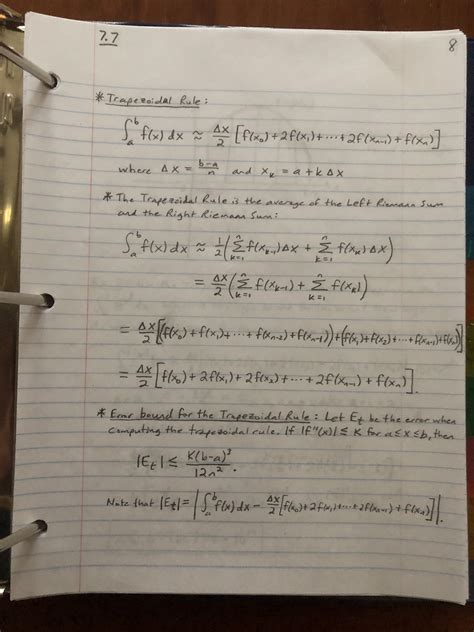 7.7
8
* Trapezoidal Rule:
∫_a^b f(x) dx ≈ Δx/2 [f(x₀) + 2f(x₁) + ⋯ + 2f(xₙ₋₁) + f(xₙ)]
where Δx = (b-a)/n and xₖ = a + kΔx
* The Trapezoidal Rule is the average of the Left Riemann Sum
and the Right Riemann Sum:
∫_a^b f(x) dx ≈ 1/2 (∑_{k=1}^n f(xₖ₋₁)Δx + ∑_{k=1}^n f(xₖ)Δx)
= Δx/2 (∑_{k=1}^n f(xₖ₋₁) + ∑_{k=1}^n f(xₖ))
= Δx/2 [(f(x₀) + f(x₁) + ⋯ + f(xₙ₋₂) + f(xₙ₋₁)) + (f(x₁) + f(x₂) + ⋯ + f(xₙ₋₁) + f(xₙ))]
= Δx/2 [f(x₀) + 2f(x₁) + 2f(x₂) + ⋯ + 2f(xₙ₋₁) + f(xₙ)].
* Error bound for the Trapezoidal Rule: Let Eₜ be the error when
computing the trapezoidal rule. If |f''(x)| ≤ K for a ≤ x ≤ b, then
|Eₜ| ≤ K(b-a)³/12n².
Note that |Eₜ| = |∫_a^b f(x) dx - Δx/2 [f(x₀) + 2f(x₁) + ⋯ + 2f(xₙ₋₁) + f(xₙ)]|.